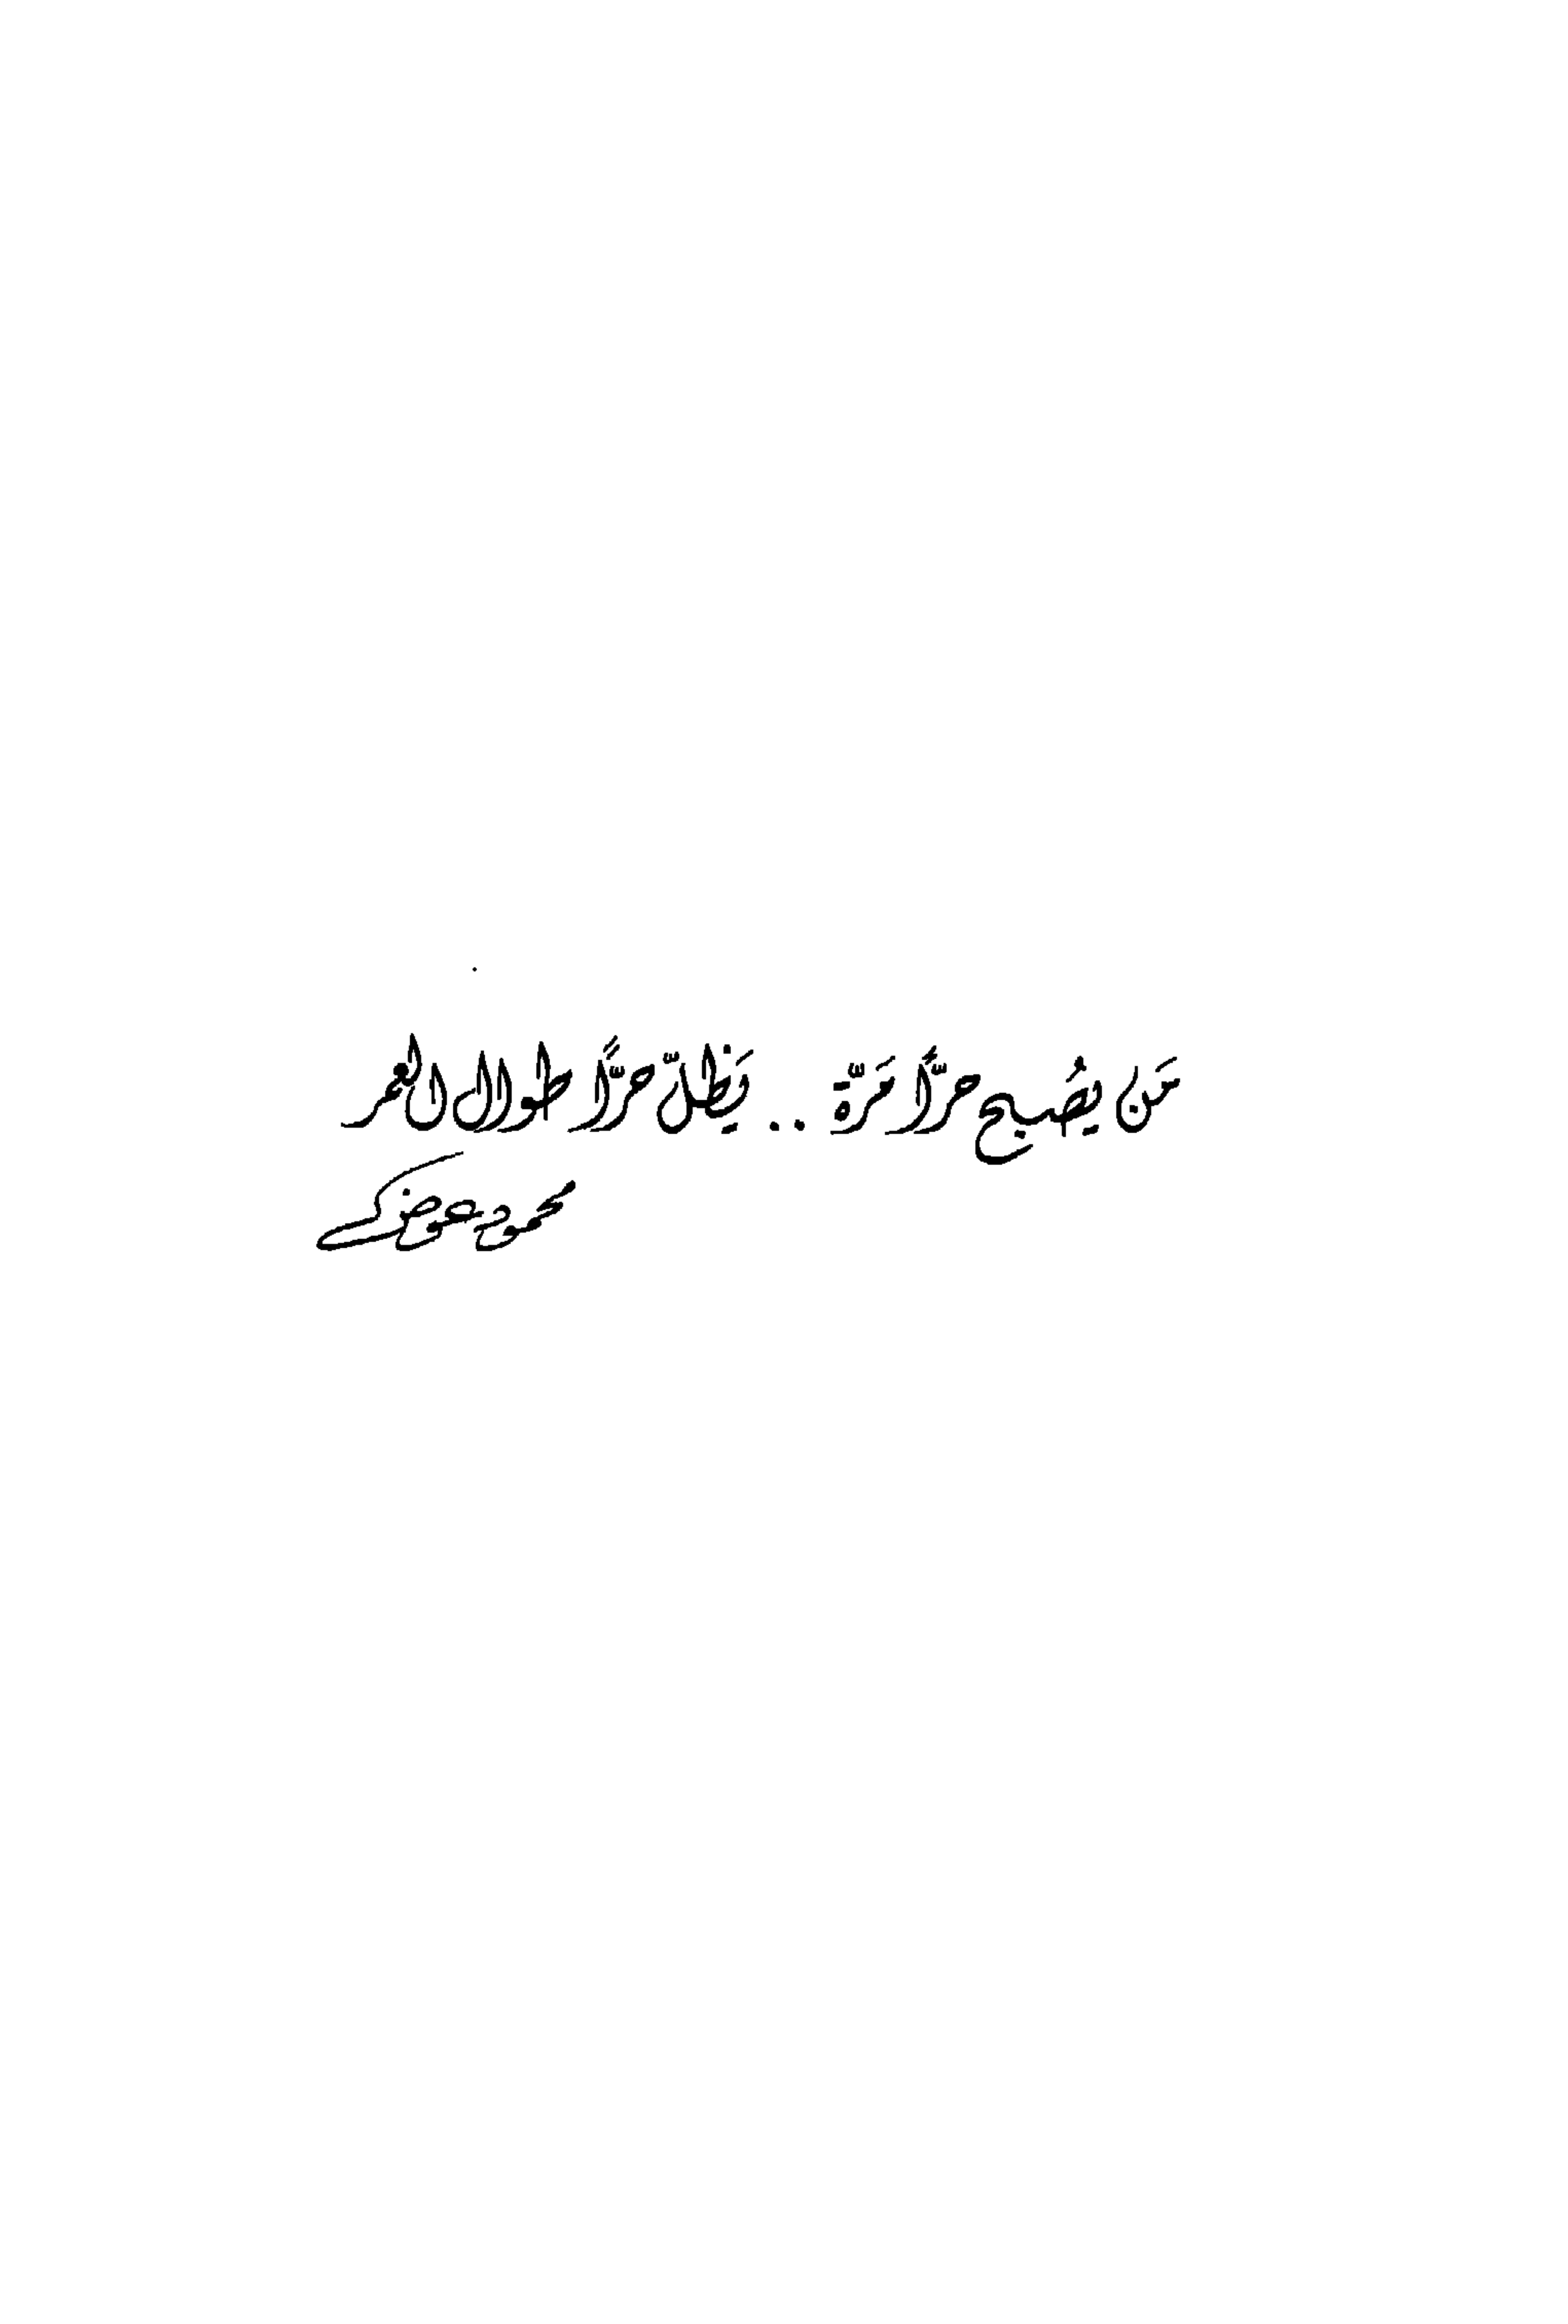 مَن يُصْبح حرًّا مَرّة .. يَظلّ حرًّا طوال العمر
محمود عوض